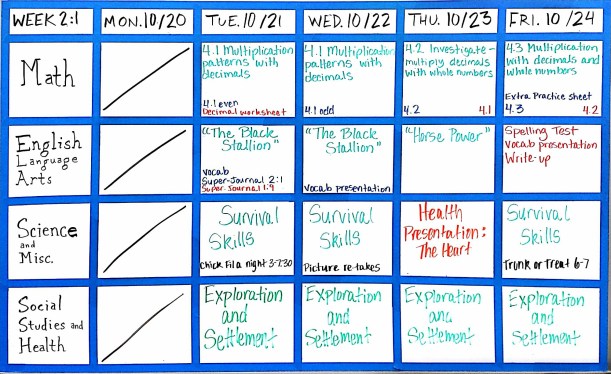 WEEK 2:1
MON. 10/20
TUE. 10/21
WED. 10/22
THU. 10/23
FRI. 10/24
Math
4.1 Multiplication
patterns with
decimals
4.1 even
Decimal worksheet
4.1 Multiplication
patterns with
decimals
4.1 odd
4.2 Investigate-
multiply decimals
with whole numbers
4.2
4.1
4.3 Multiplication
with decimals and
whole numbers
Extra Practice sheet
4.3
4.2
English
Language
Arts
"The Black
Stallion"
vocab
Super-Journal 2:1
Super Journal 1:9
"The Black
Stallion"
vocab presentation
"Horse Power"
Spelling Test
vocab presentation
Write-up
Science
and
Misc.
Survival
Skills
Chick Fil a night 3-7:30
Survival
Skills
Picture re-takes
Health
Presentation:
The Heart
Survival
Skills
Trunk or Treat 6-7
Social
Studies and
Health
Exploration
and
Settlement
Exploration
and
Settlement
Exploration
and
Settlement
Exploration
and
Settlement